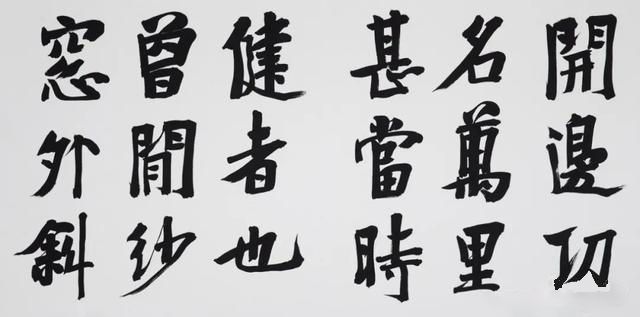 開邊功
名萬里
甚當時
健者也
曾閒紗
窓外斜